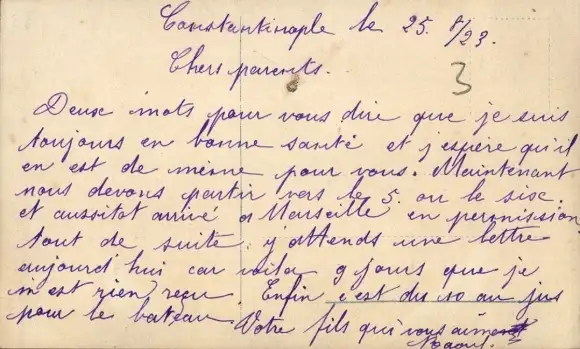 Constantinople le 25. 8/23.
3
Chers parents.
Deux mots pour vous dire que je suis
toujours en bonne santé et j'espère qu'il
en est de même pour vous. Maintenant
nous devons partir vers le 5. ou le six.
et aussitot arrivé a Marseille en permission
tout de suite. j'attends une lettre
aujourd'hui car voila 9 jours que je
n'est rien reçu. Enfin c'est du 10 au jus
pour le bateau. Votre fils qui vous aime
Raoul.